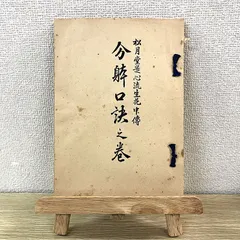 松月堂古心流生花中傳
分躰口訣之巻